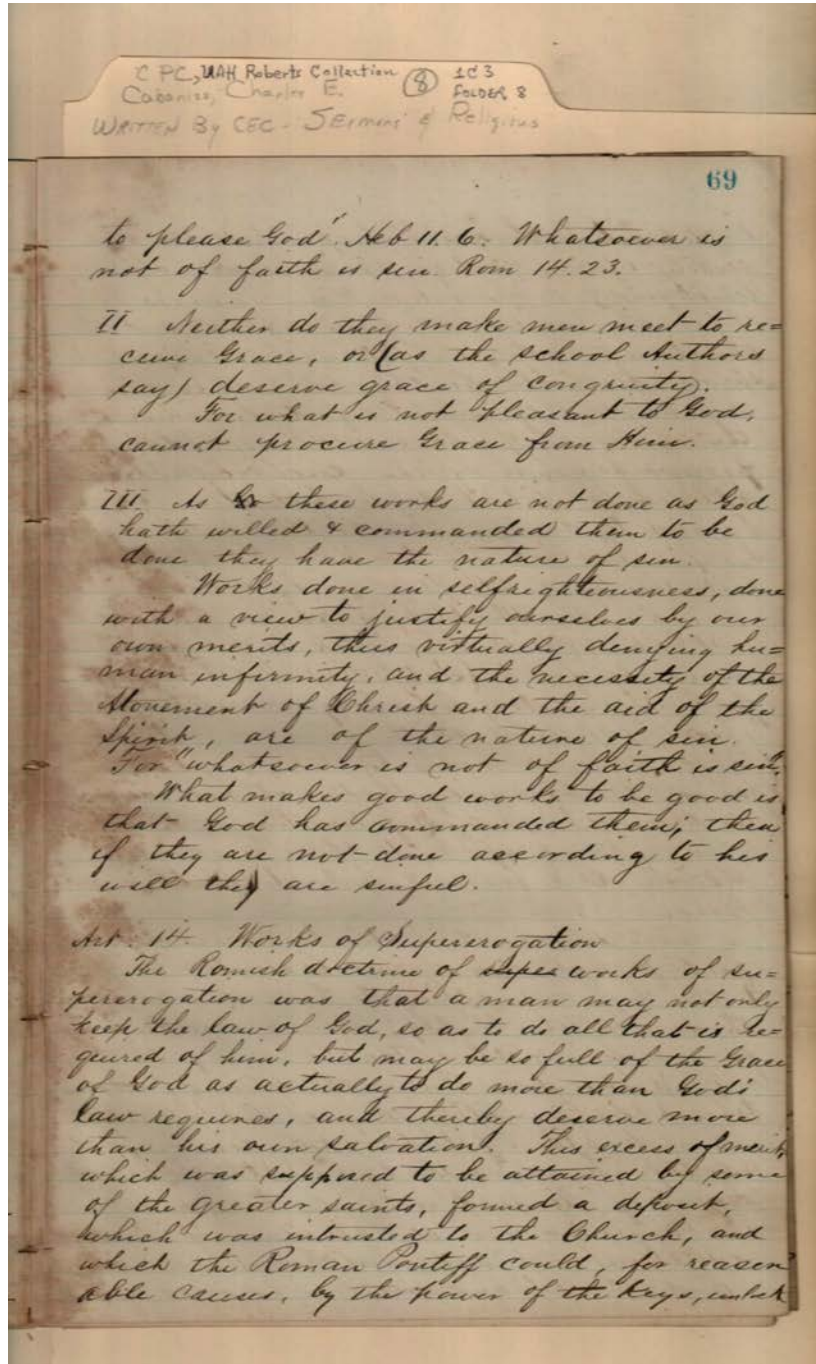 C PC, UAH Roberts Collection (8) 1C3
Cabaniss, Charles E. FOLDER 8
WRITTEN By CEC - SErmons & Religious
69
to please God". Heb 11. 6. Whatsoever is
not of faith is sin. Rom 14. 23.
II Neither do they make men meet to re=
ceive Grace, or (as the school Authors
say) deserve grace of congruity).
For what is not pleasant to God,
cannot procure Grace from Him.
III As these works are not done as God
hath willed & commanded them to be
done they have the nature of sin.
Works done in selfrighteousness, done
with a view to justify ourselves by our
own merits, thus virtually denying hu=
man infirmity, and the necessity of the
Atonement of Christ and the aid of the
Spirit, are of the nature of sin.
For "whatsoever is not of faith is sin".
What makes good works to be good is
that God has commanded them; then
if they are not done according to his
will they are sinful.
Art. 14. Works of Supererogation
The Romish doctrine of supe works of su=
pererogation was that a man may not only
keep the law of God, so as to do all that is re=
quired of him, but may be so full of the Grace
of God as actually to do more than God's
law requires, and thereby deserve more
than his own salvation. This excess of merit,
which was supposed to be attained by some
of the greater saints, formed a deposit,
which was intrusted to the Church, and
which the Roman Pontiff could, for reason
able causes, by the power of the Keys, unlock